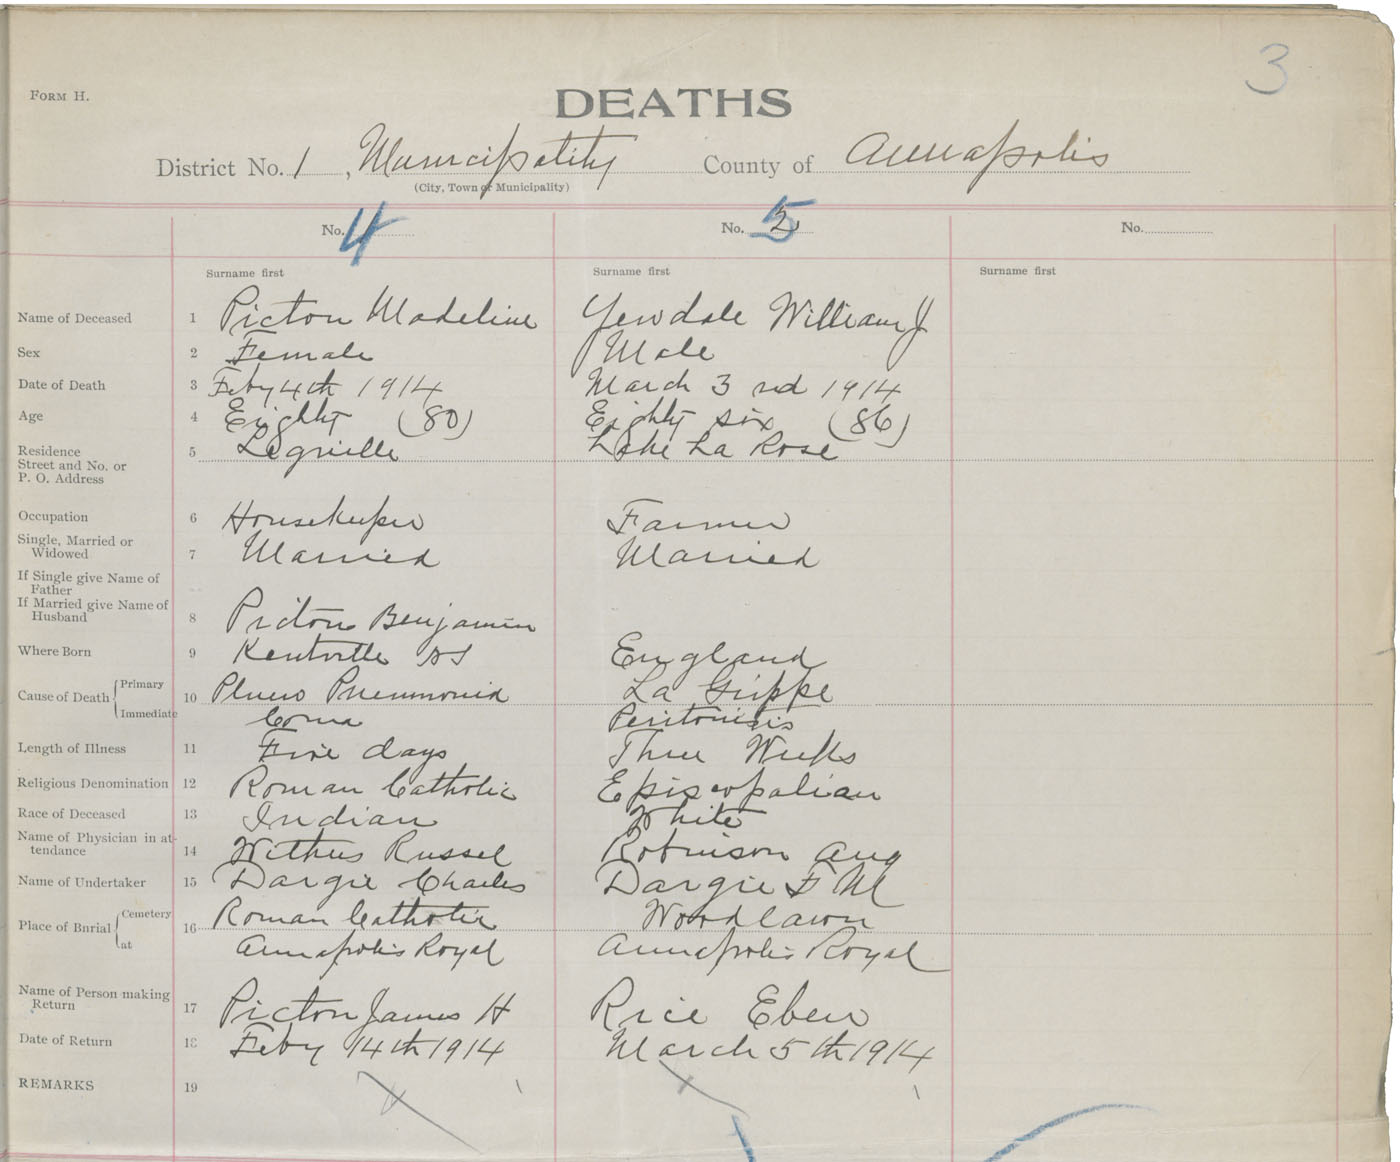 3
FORM H.
DEATHS
District No. 1, Municipality County of Annapolis
(City, Town or Municipality)
No. 4 No. 5 2 No.
Surname first Surname first Surname first
Name of Deceased 1 Picton Madeline Yewdale William J
Sex 2 Female Male
Date of Death 3 Feby 4th 1914 March 3rd 1914
Age 4 Eighty (80) Eighty six (86)
Residence Street and No. or P. O. Address 5 Leqville Lake La Rose
Occupation 6 Housekeeper Farmer
Single, Married or Widowed 7 Married Married
If Single give Name of Father
If Married give Name of Husband 8 Picton Benjamin
Where Born 9 Kentville NS England
Cause of Death Primary 10 Pluro Pneumonia La Grippe
Immediate Coma Peritonitis
Length of Illness 11 Five days Three Weeks
Religious Denomination 12 Roman Catholic Episcopalian
Race of Deceased 13 Indian White
Name of Physician in attendance 14 Russel Robinson Aug
Name of Undertaker 15 Dargie Charles Dargie F M
Place of Burial Cemetery 16 Roman Catholic Woodlawn
at Annapolis Royal Annapolis Royal
Name of Person making Return 17 Picton James H Rice Eber
Date of Return 18 Feby 14th 1914 March 5th 1914
REMARKS 19